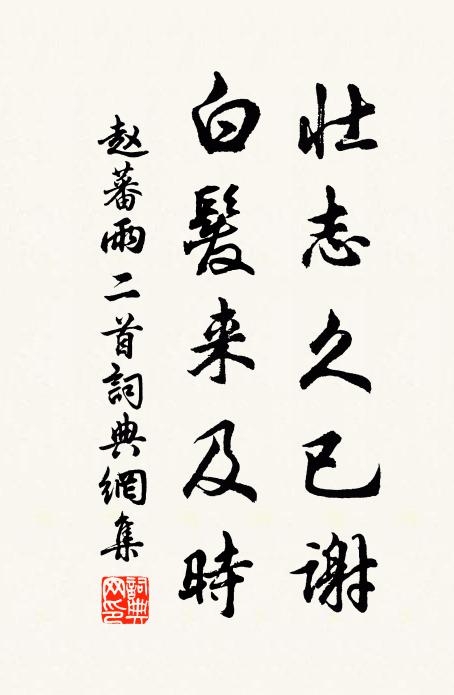 壮志久已謝
白髮来及時
赵蕃雨二首詞典網集
詞典网印